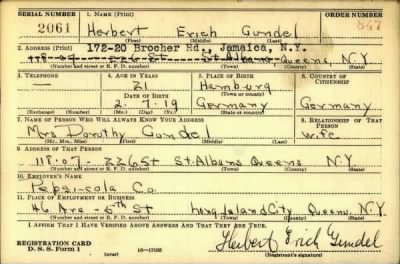 SERIAL NUMBER 1. NAME (Print) ORDER NUMBER
2061 Herbert Erich Gundel 847
(First) (Middle) (Last)
2. ADDRESS (Print) 172-20 Brocher Rd., Jamaica, N.Y.
118-07 - 226 St St. Albans Queens, N.Y.
(Number and street or R. F. D. number) (Town) (County) (State)
3. TELEPHONE 4. AGE IN YEARS 5. PLACE OF BIRTH 6. COUNTRY OF CITIZENSHIP
21 Hamburg
DATE OF BIRTH (Town or county)
2. 7. 19 Germany Germany
(Exchange) (Number) (Mo.) (Day) (Yr.) (State or country)
7. NAME OF PERSON WHO WILL ALWAYS KNOW YOUR ADDRESS 8. RELATIONSHIP OF THAT PERSON
Mrs Dorothy Gundel wife
(Mr., Mrs., Miss) (First) (Middle) (Last)
9. ADDRESS OF THAT PERSON
118-07 - 226 St St. Albans Queens N.Y.
(Number and street or R. F. D. number) (Town) (County) (State)
10. EMPLOYER'S NAME
Pepsi-cola Co.
11. PLACE OF EMPLOYMENT OR BUSINESS
46 Ave - 5th St Long Island City Queens N.Y.
(Number and street or R. F. D. number) (Town) (County) (State)
I AFFIRM THAT I HAVE VERIFIED ABOVE ANSWERS AND THAT THEY ARE TRUE.
REGISTRATION CARD
D. S. S. Form 1 16-17105 Herbert Erich Gundel
(Registrant's signature)